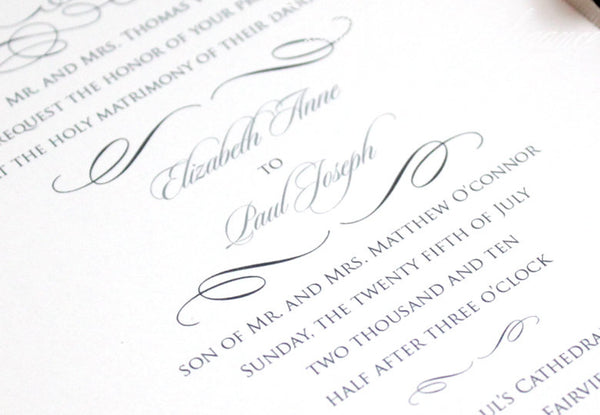 MR. AND MRS. THOMAS
REQUEST THE HONOR OF YOUR
AT THE HOLY MATRIMONY OF THEIR
Elizabeth Anne
TO
Paul Joseph
SON OF MR. AND MRS. MATTHEW O'CONNOR
SUNDAY, THE TWENTY FIFTH OF JULY
TWO THOUSAND AND TEN
HALF AFTER THREE O'CLOCK